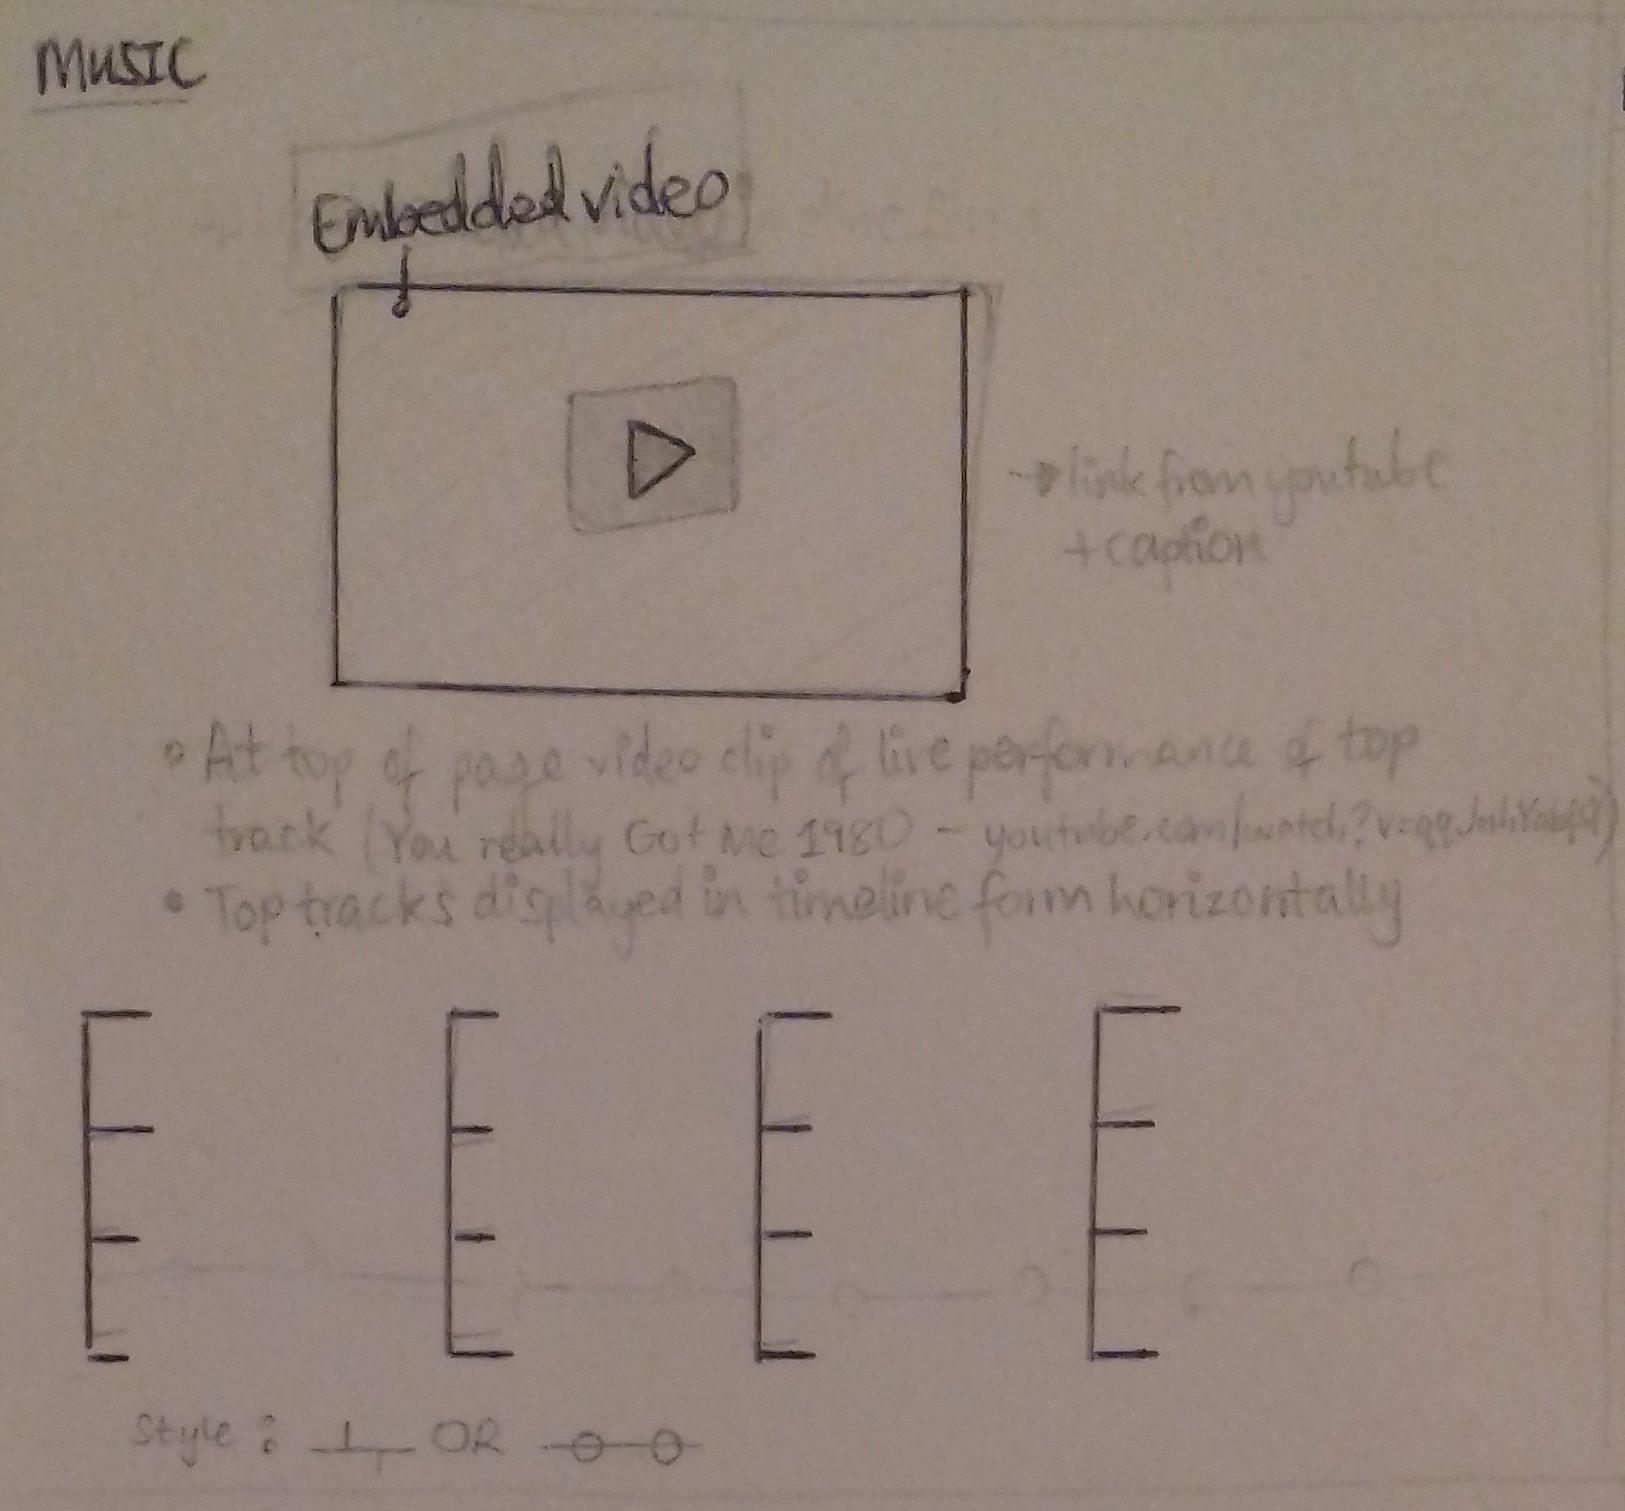 MUSIC
Embedded video
link from youtube
+ caption
At top of page video clip of live performance of top
track (You really Got Me 1980 - youtube.com/watch?v=
Top tracks displayed in timeline form horizontally
Style : OR